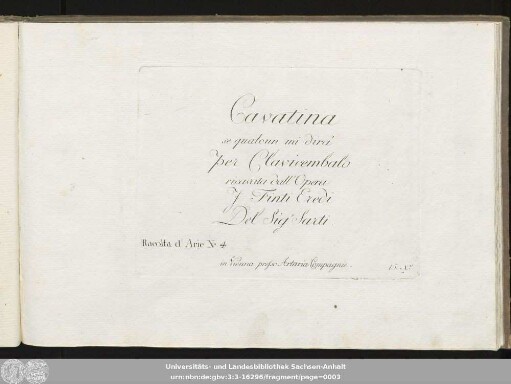 Cavatina
se qualcun mi dirà
per Clavicembalo
ricavata dall'Opera
I Finti Eredi
Del Sig.r Sarti
Raccolta d Arie N.º 4
in Vienna presso Artaria Compagni.
15 Xr
Universitäts- und Landesbibliothek Sachsen-Anhalt
urn:nbn:de:gbv:3:3-16296/fragment/page=0003